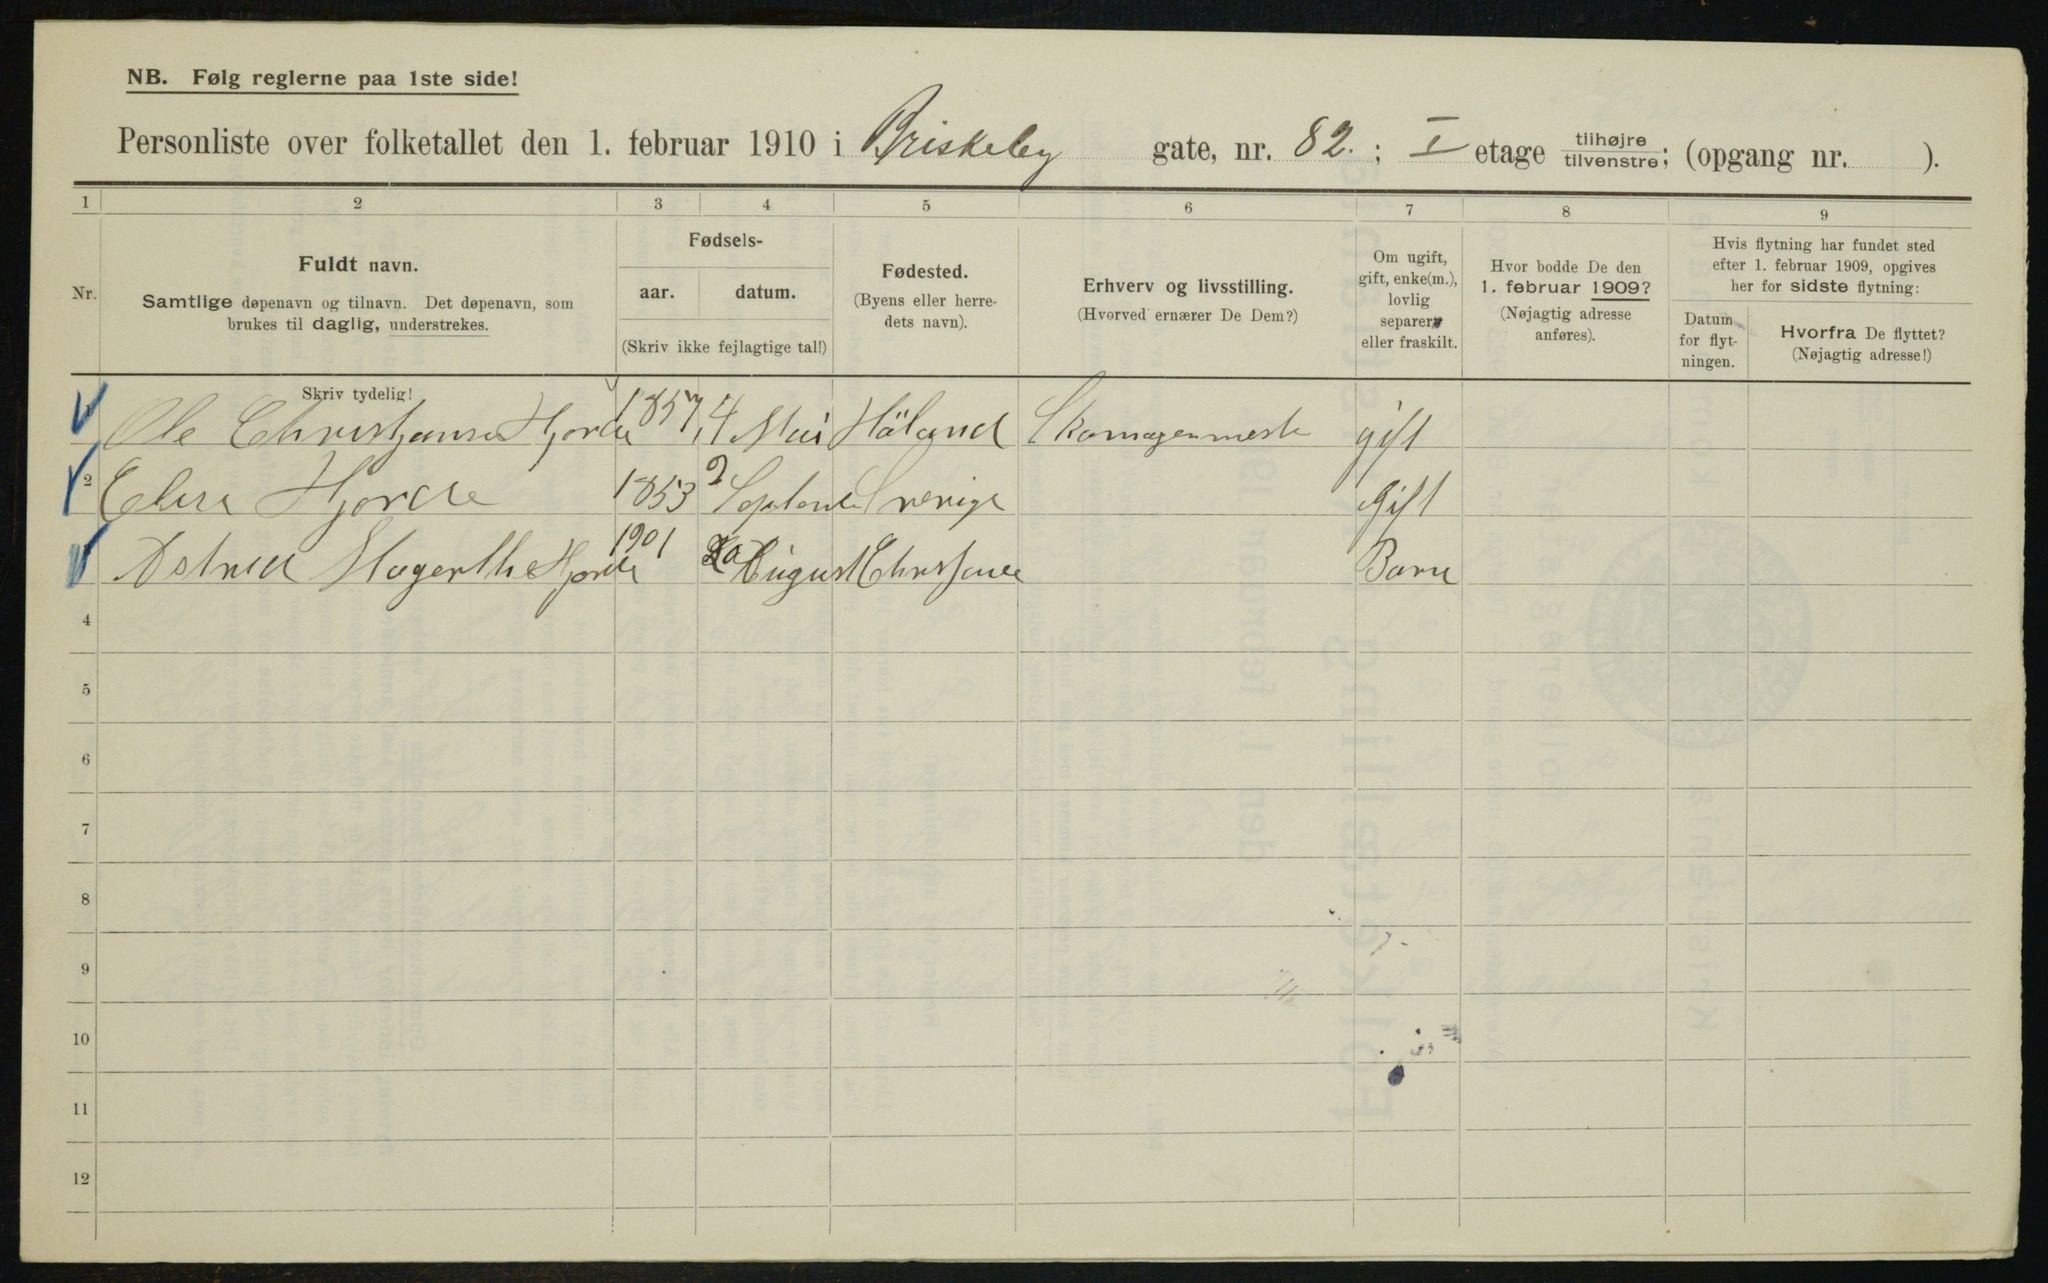 NB. Følg reglerne paa 1ste side!
Personliste over folketallet den 1. februar 1910 i Briskeby gate, nr. 82. ; I etage tilhøjre/tilvenstre; (opgang nr. ).
1 2 3 4 5 6 7 8 9
Nr.
Fuldt navn.
Samtlige døpenavn og tilnavn. Det døpenavn, som
brukes til daglig, understrekes.
Fødsels-
aar. datum.
(Skriv ikke fejlagtige tal!)
Fødested.
(Byens eller herre-
dets navn).
Erhverv og livsstilling.
(Hvorved ernærer De Dem?)
Om ugift,
gift, enke(m.),
lovlig
separert
eller fraskilt.
Hvor bodde De den
1. februar 1909?
(Nøjagtig adresse
anføres).
Hvis flytning har fundet sted
efter 1. februar 1909, opgives
her for sidste flytning:
Datum
for flyt-
ningen.
Hvorfra De flyttet?
(Nøjagtig adresse!)
Skriv tydelig!
1 Ole Hjorde 1857 4 Mai Höland gift
2 Elise Hjorde 1853 2 Sverige Gift
Astrid Hjorde 1901 20 August Barn
4
5
6
7
8
9
10
11
12